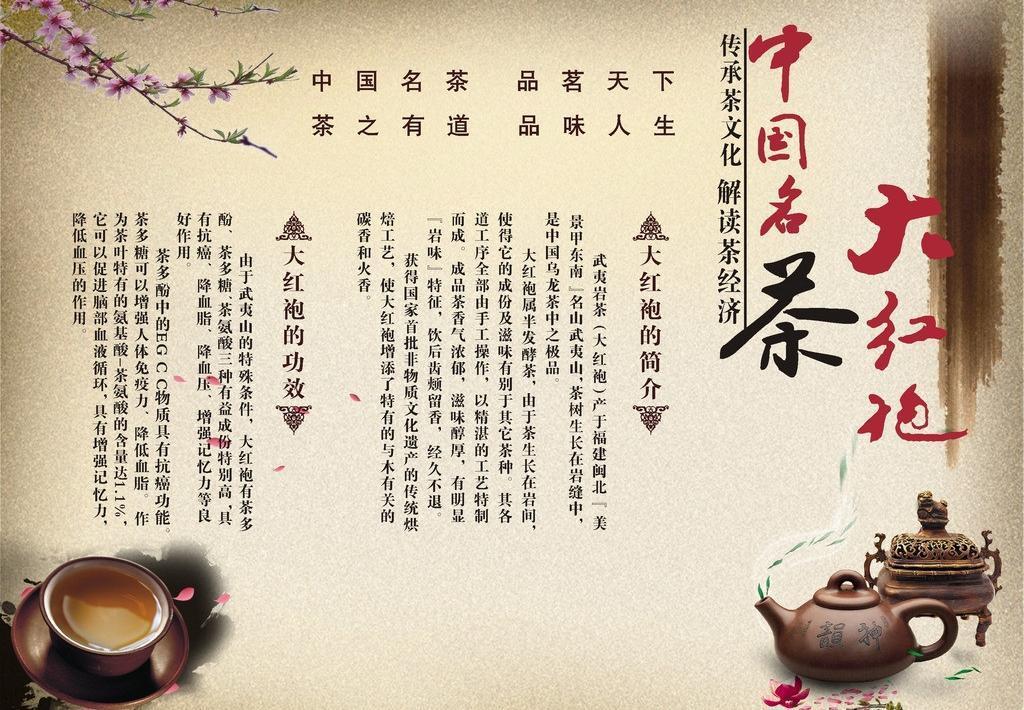 大红袍
中国名茶
传承茶文化 解读茶经济
中国名茶 品茗天下
茶之有道 品味人生
大红袍的简介
武夷岩茶（大红袍）产于福建闽北『美
景甲东南』名山武夷山，茶树生长在岩缝中，
是中国乌龙茶中之极品。
大红袍属半发酵茶，由于茶生长在岩间，
使得它的成份及滋味有别于其它茶种。其各
道工序全部由手工操作，以精湛的工艺特制
而成。成品茶香气浓郁，滋味醇厚，有明显
『岩味』特征，饮后齿颊留香，经久不退。
获得国家首批非物质文化遗产的传统烘
焙工艺，使大红袍增添了特有的与木有关的
碳香和火香。
大红袍的功效
由于武夷山的特殊条件，大红袍有茶多
酚、茶多糖、茶氨酸三种有益成份特别高，具
有抗癌、降血脂、降血压、增强记忆力等良
好作用。
茶多酚中的EGCC物质具有抗癌功能。
茶多糖可以增强人体免疫力、降低血脂。作
为茶叶特有的氨基酸—茶氨酸的含量达1.1%，
它可以促进脑部血液循环，具有增强记忆力，
降低血压的作用。
韻神